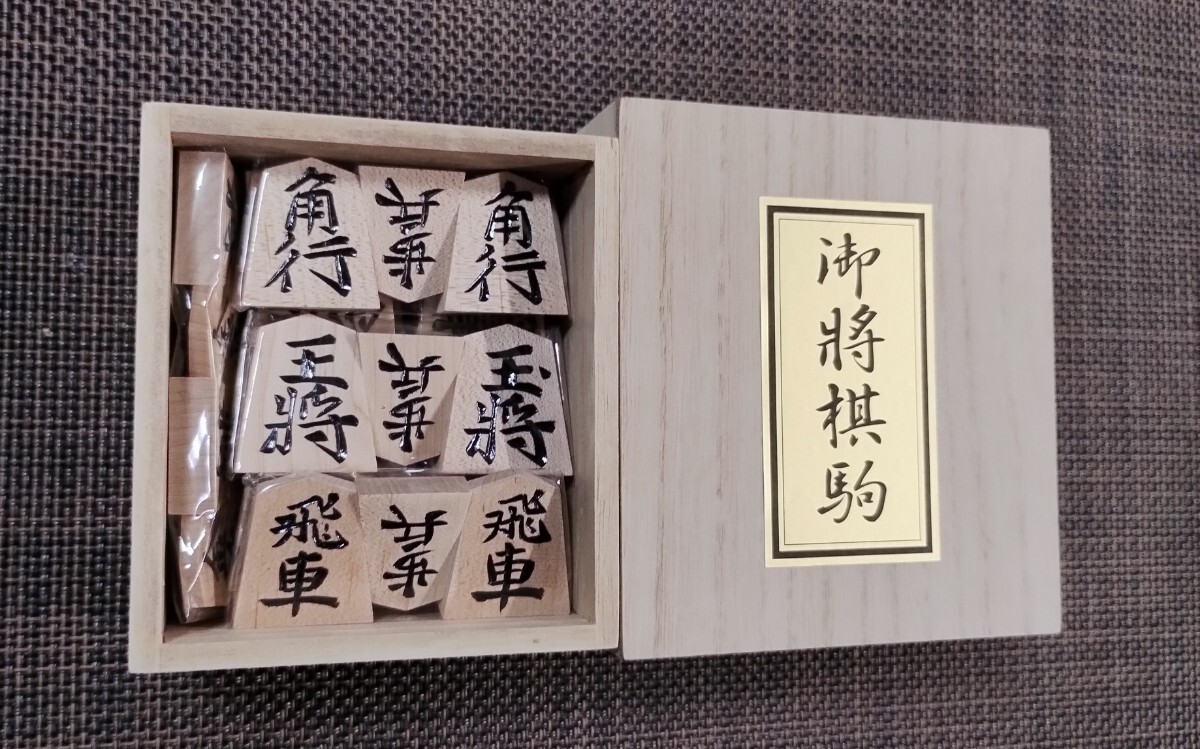 角行
歩兵
角行
王將
歩兵
玉將
飛車
歩兵
飛車
御將棋駒